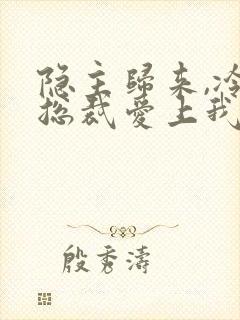 隐主歸来,冷
总裁爱上我
殷秀濤